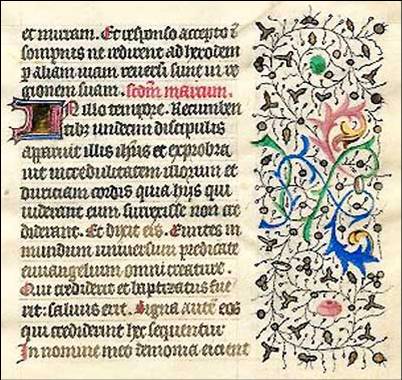 et mirram. Et responso accepto ī
sompnis ne redirent ad herodem
p aliam uiam reuersi sunt in re
gionem suam. scdm marcum.
In illo tempore. Recumben
tibz undecim discipulis
apparuit illis ihsus et exprobra
uit incredulitatem illorum et
duriciam cordis quia hijs qui
uiderant eum surrexisse non cre
diderant. Et dixit eis. Euntes in
mundum uniuersum predicate
euuangelium omni creature.
Qui crediderit et baptizatus fue
rit: saluus erit. Signa autē eos
qui crediderint hec sequentur
In nomine meo demonia eicient